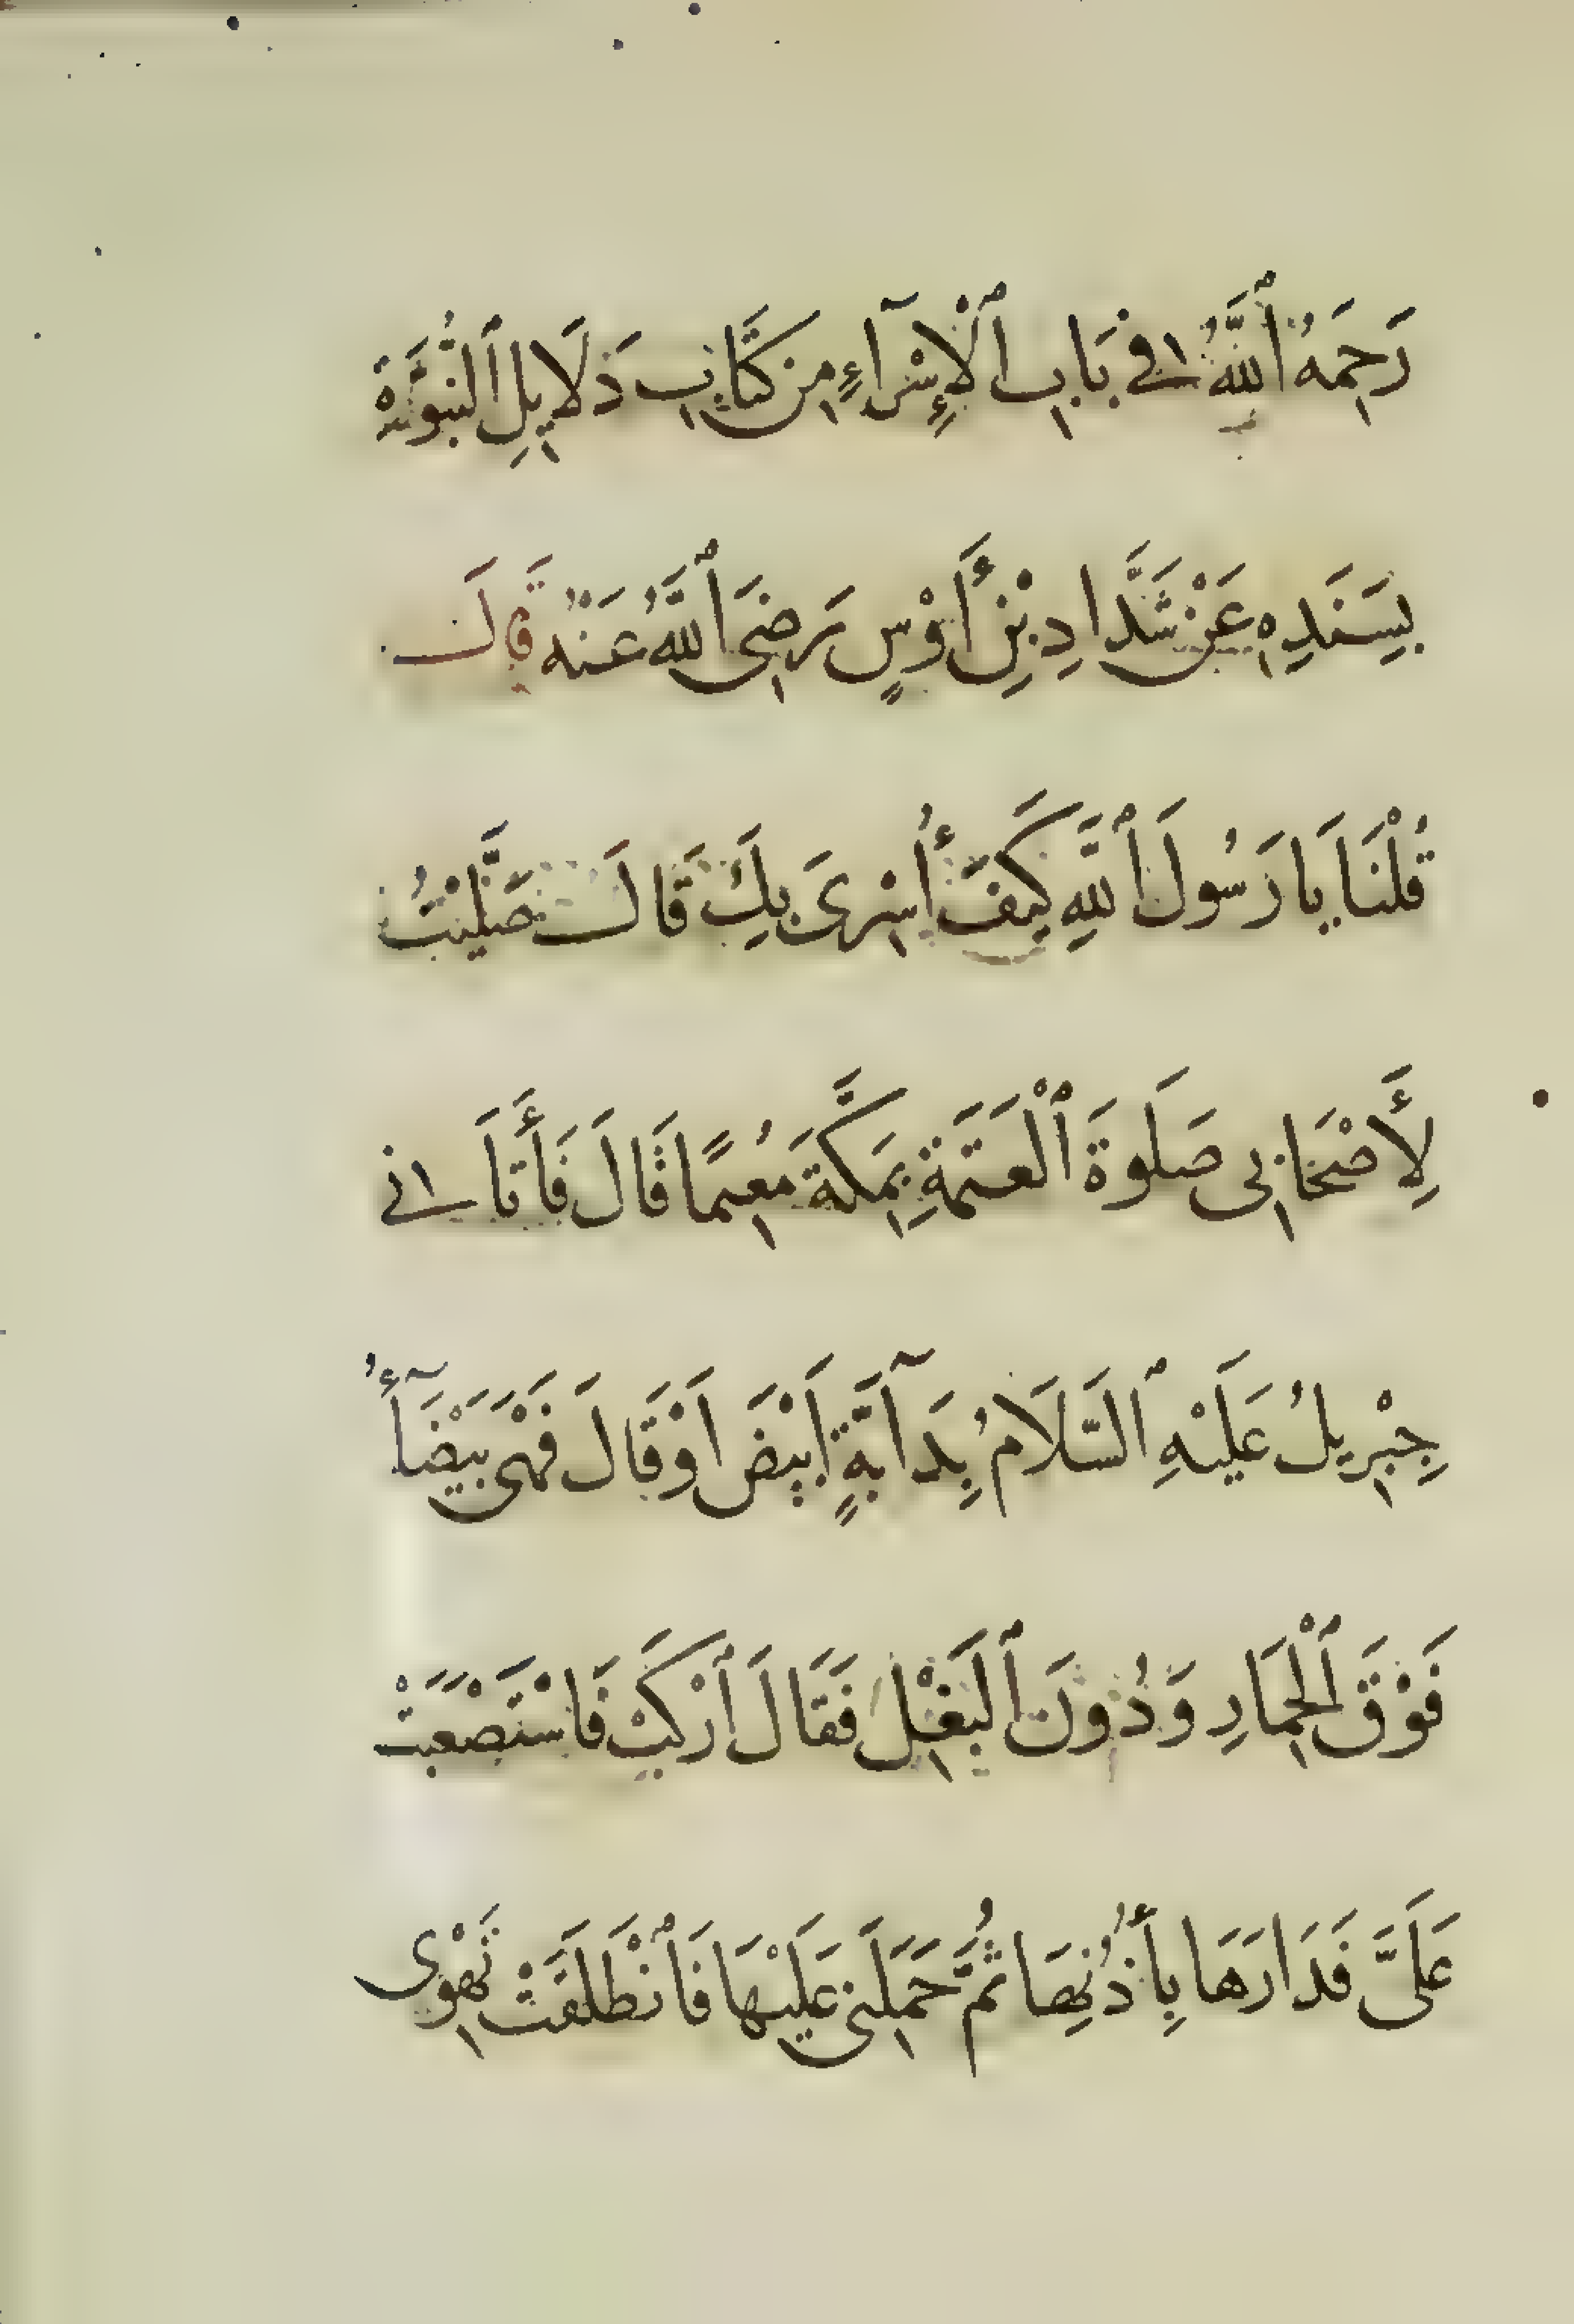 رَحِمَهُ ٱللَّهُ فِي بَابِ ٱلْإِسْرَآءِ مِنْ كِتَابِ دَلَايِلِ ٱلنُّبُوَّةِ
بِسَنَدِهِ عَنْ شَدَّادِ بْنِ أَوْسٍ رَضِىَ ٱللَّهُ عَنْهُ قَالَ
قُلْنَا يَا رَسُولَ ٱللَّهِ كَيْفَ أُسْرِىَ بِكَ قَالَ صَلَّيْتُ
لِأَصْحَابِى صَلَوةَ ٱلْعَتَمَةِ بِمَكَّةَ مُعْتِمًا قَالَ فَأَتَانِى
جِبْرِيلُ عَلَيْهِ ٱلسَّلَامُ بِدَآبَّةٍ اَبْيَضَ اَوْ قَالَ فَهْىَ بَيْضَآءُ
فَوْقَ ٱلْحِمَارِ وَدُونَ ٱلْبَغْلِ فَقَالَ ٱرْكَبْ فَاسْتَصْعَبَتْ
عَلَىَّ فَدَارَهَا بِأُذُنِهَا ثُمَّ حَمَلَنِى عَلَيْهَا فَٱنْطَلَقَتْ تَهْوِى